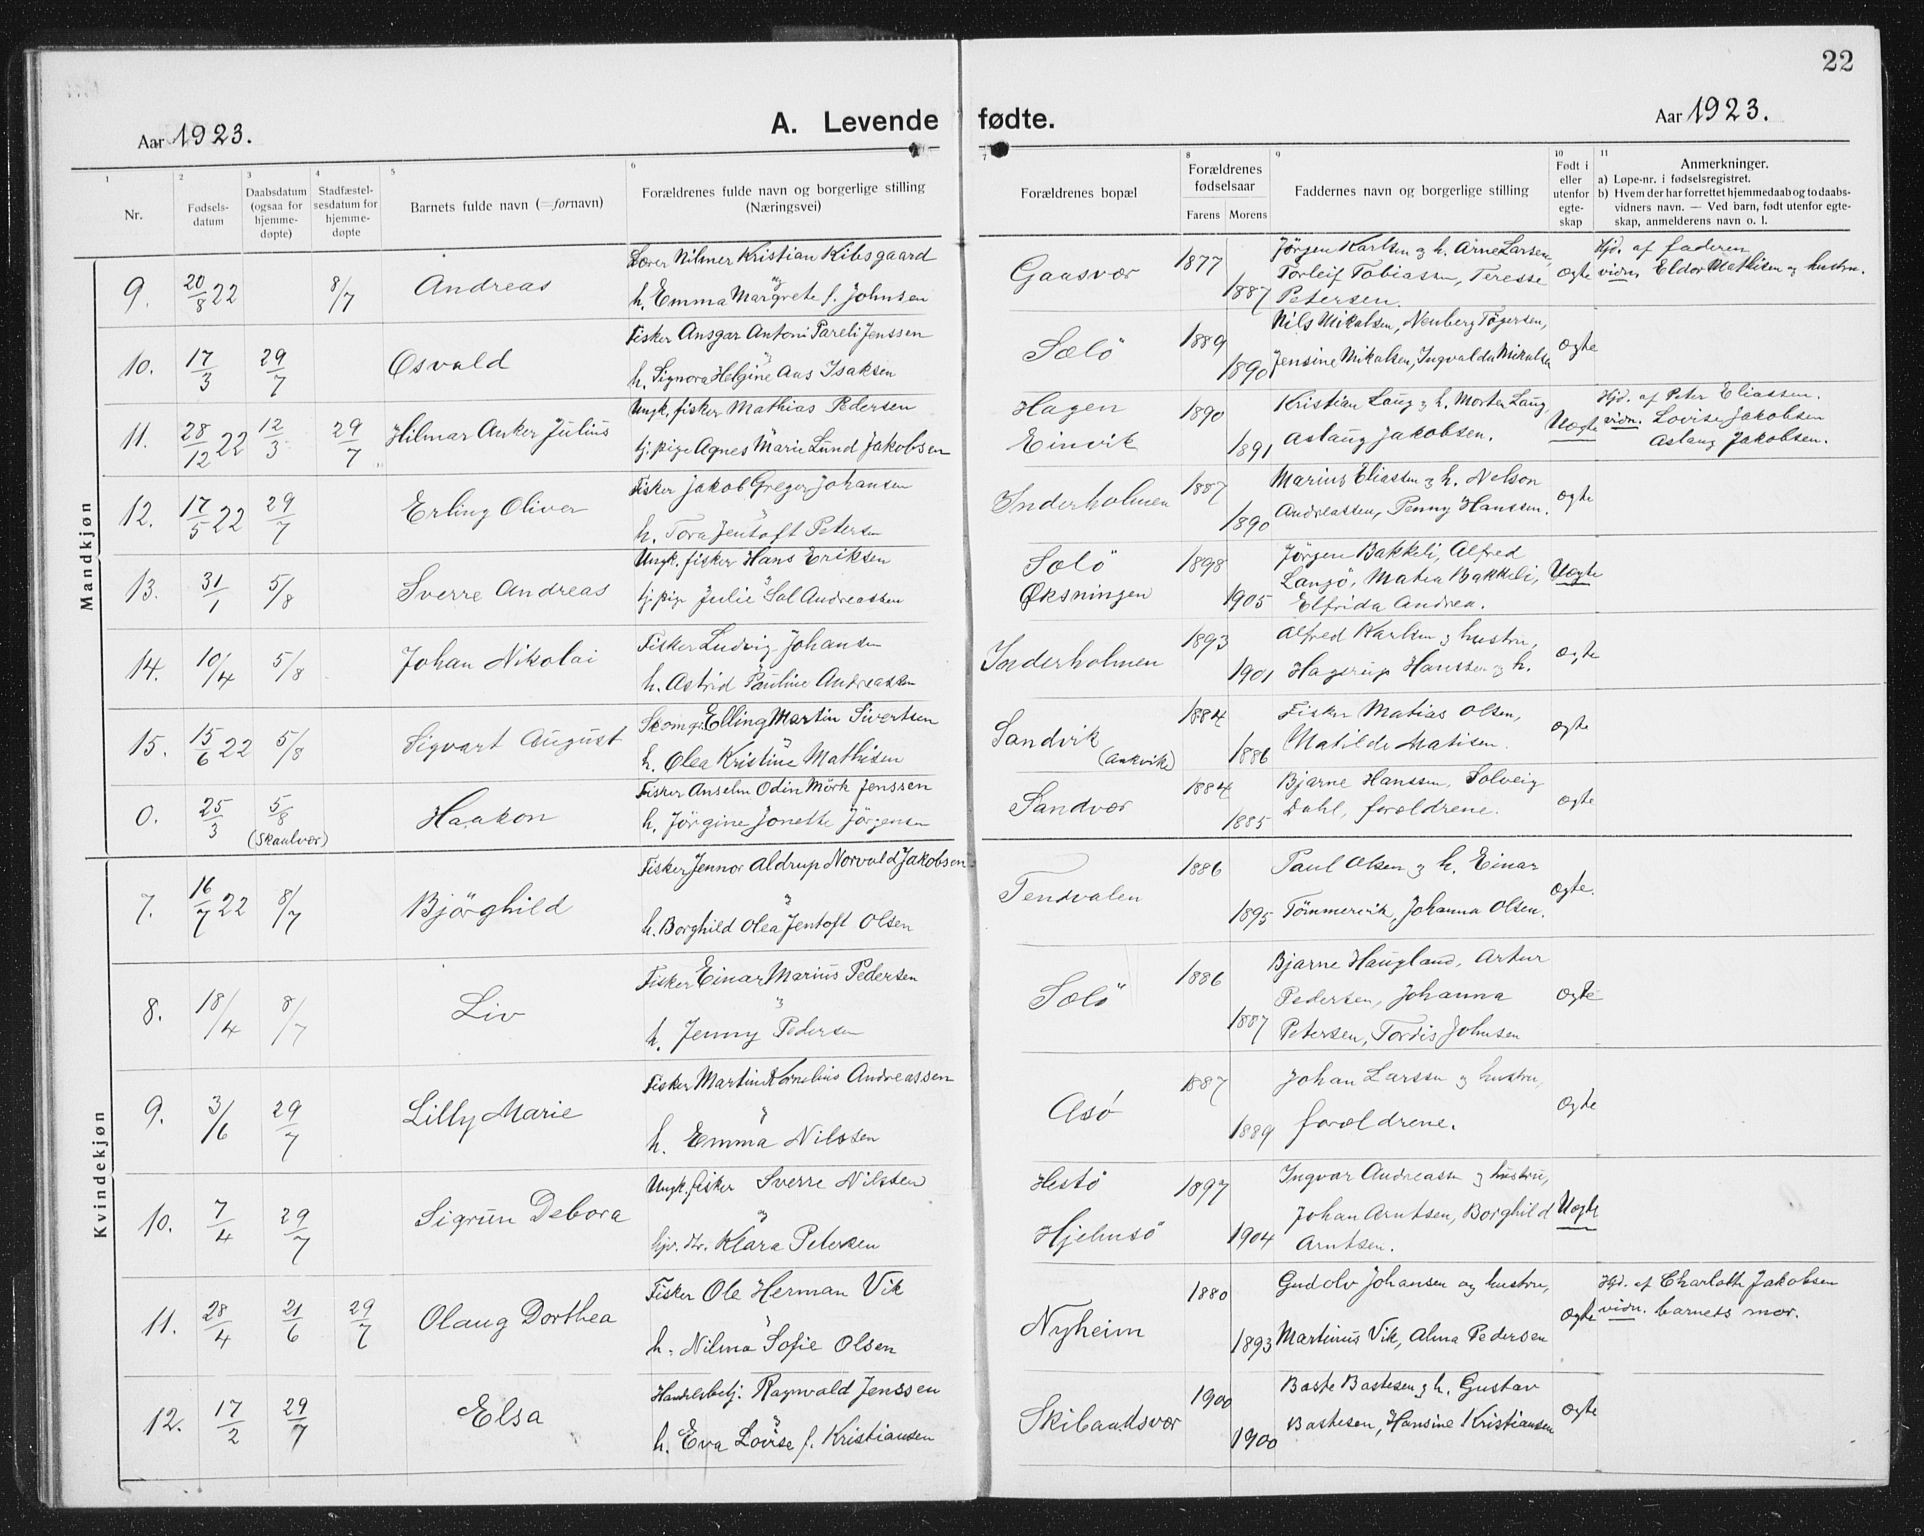 22
Aar 1923.
A. Levende fødte.
Aar 1923.
1
2
3
4
5
6
7
8
9
10
11
Nr.
Fødsels-
datum
Daabsdatum
(ogsaa for
hjemme-
døpte)
Stadfæstel-
sesdatum for
hjemme-
døpte
Barnets fulde navn (=fornavn)
Forældrenes fulde navn og borgerlige stilling
(Næringsvei)
Forældrenes bopæl
Forældrenes
fødselsaar
Farens Morens
Faddernes navn og borgerlige stilling
Født i
eller
utenfor
egte-
skap
Anmerkninger.
a) Løpe-nr. i fødselsregistret.
b) Hvem der har forrettet hjemmedaab og to daabs-
vidners navn. — Ved barn, født utenfor egte-
skap, anmelderens navn o. l.
Mandkjøn
9. 20/8 22 8/7 Andreas
Lærer Hilmer Kristian Kibsgaard
og
h. Emma Margrete f. Johnsen
Gaasvær 1877 1887
Jörgen Karlsen og h. Arne Larsen,
Torleif Tobiassen, Teresse
Petersen.
ægte
Hjd. af faderen
vidn. Eldor Mathisen og hustru.
10. 17/3 29/7 Osvald
Fisker Ansgar Antoni Pareli Jenssen
h. Signora Helgine Aas Isaksen
Sælö 1889 1890
Nils Mikalsen, Neuberg Tøgersen,
Jensine Mikalsen, Ingvalda Mikalsen
ægte
11. 28/12 22 12/3 29/7 Hilmar Anker Julius
Ungk. fisker Mathias Pedersen
tj. pige Agnes Marie Lund Jakobsen
Hagen
Einvik
1890 1891
Kristian Laug og h. Morten Laug,
Aslaug Jakobsen.
Uægte
Hjd. af Peter Eliassen.
vidn. Lovise Jakobsen
Aslaug Jakobsen.
12. 17/5 22 29/7 Erling Oliver
Fisker Jakob Greger Johansen
h. Tora Jentoft Petersen
Inderholmen 1887 1890
Marius Eliassen og h. Nelson
Andreassen, Penny Hanssen.
ægte
13. 31/1 5/8 Sverre Andreas
Ungk. fisker Hans Eriksen
tj. pige Julie Sal Andreassen
Sælö
Øksningen
1898 1905
Jörgen Bakkeli, Alfred
Langö, Matea Bakkeli,
Elfrida Andrea.
Uægte
14. 10/4 5/8 Johan Nikolai
Fisker Ludvig Johansen
h. Astrid Pauline Andreassen
Inderholmen 1893 1901
Alfred Karlsen og hustru,
Hagerup Hanssen og h.
ægte
15. 15/6 22 5/8 Sigvart August
Skomgr. Elling Martin Sivertsen
h. Olea Kristine Mathisen
Sandvik
(Aakvik)
1884 1886
Fisker Matias Olsen,
Matilde Matisen.
ægte
0. 25/3 5/8 (Skaalvær) Haakon
Fisker Anselm Odin Mörk Jenssen
h. Jörgine Jonette Jörgensen
Sandvær 1884 1885
Bjarne Hanssen, Solveig
Dahl, forældrene.
ægte
Kvindekjøn
7. 16/7 22 8/7 Björghild
Fisker Jennor Aldrup Norvald Jakobsen
h. Borghild Olea Jentoft Olsen
Tendvalen 1886 1895
Paul Olsen og h. Einar
Tömmervik, Johanna Olsen.
ægte.
8. 18/4 8/7 Liv
Fisker Einar Marius Pedersen
h. Jenny Pedersen
Sælö 1886 1887
Bjarne Haugland, Artur
Pedersen, Johanna
Petersen, Tordis Johnsen
ægte
9. 3/6 29/7 Lilly Marie
Fisker Martin Kornelius Andreassen
h. Emma Nilssen
Asö 1887 1889
Johan Larssen og hustru,
forældrene.
ægte
10. 7/4 29/7 Sigrun Debora
Ungk. fisker Sverre Nilssen
hjv. dtr. Klara Petersen
Hestö
Hjelmsö
1897 1904
Ingvar Andreassen og hustru,
Johan Arntsen, Borghild
Arntsen.
Uægte
11. 28/4 21/6 29/7 Olaug Dorthea
Fisker Ole Herman Vik
h. Nilma Sofie Olsen
Nyheim 1880 1893
Gudolv Johansen og hustru,
Martinus Vik, Alma Pedersen
ægte
Hjd. af Charlotte Jakobsen
vidn. barnets mor.
12. 17/2 29/7 Elsa
Handelsbetj. Ragnvald Jenssen
h. Eva Lovise f. Kristiansen
Skibaadsvær 1900 1900
Baste Bastesen og h. Gustav
Bastesen, Hansine Kristiansen
ægte